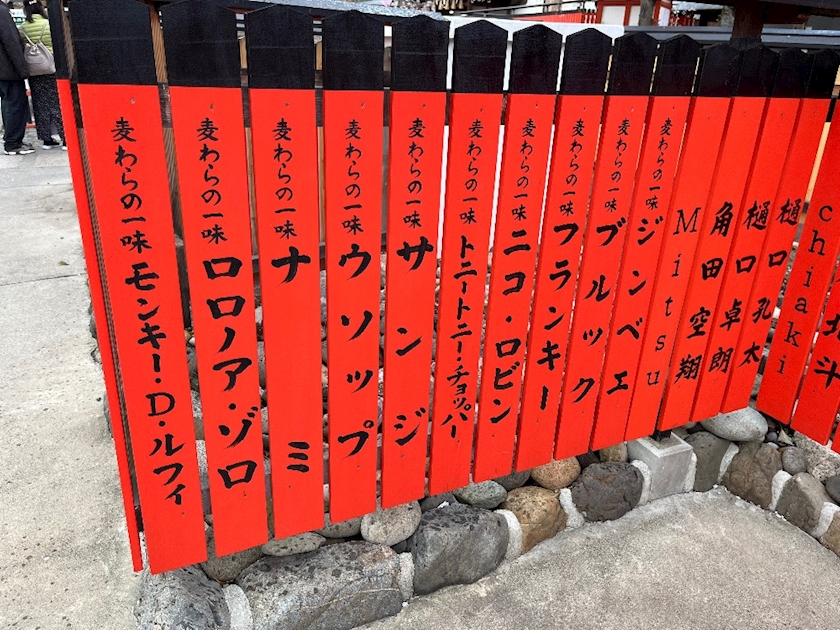 麦わらの一味 モンキー・D・ルフィ
麦わらの一味 ロロノア・ゾロ
麦わらの一味 ナミ
麦わらの一味 ウソップ
麦わらの一味 サンジ
麦わらの一味 トニートニー・チョッパー
麦わらの一味 ニコ・ロビン
麦わらの一味 フランキー
麦わらの一味 ブルック
麦わらの一味 ジンベエ
Mitsu
角田空翔
樋口卓朗
樋口孔太
chiaki
斗